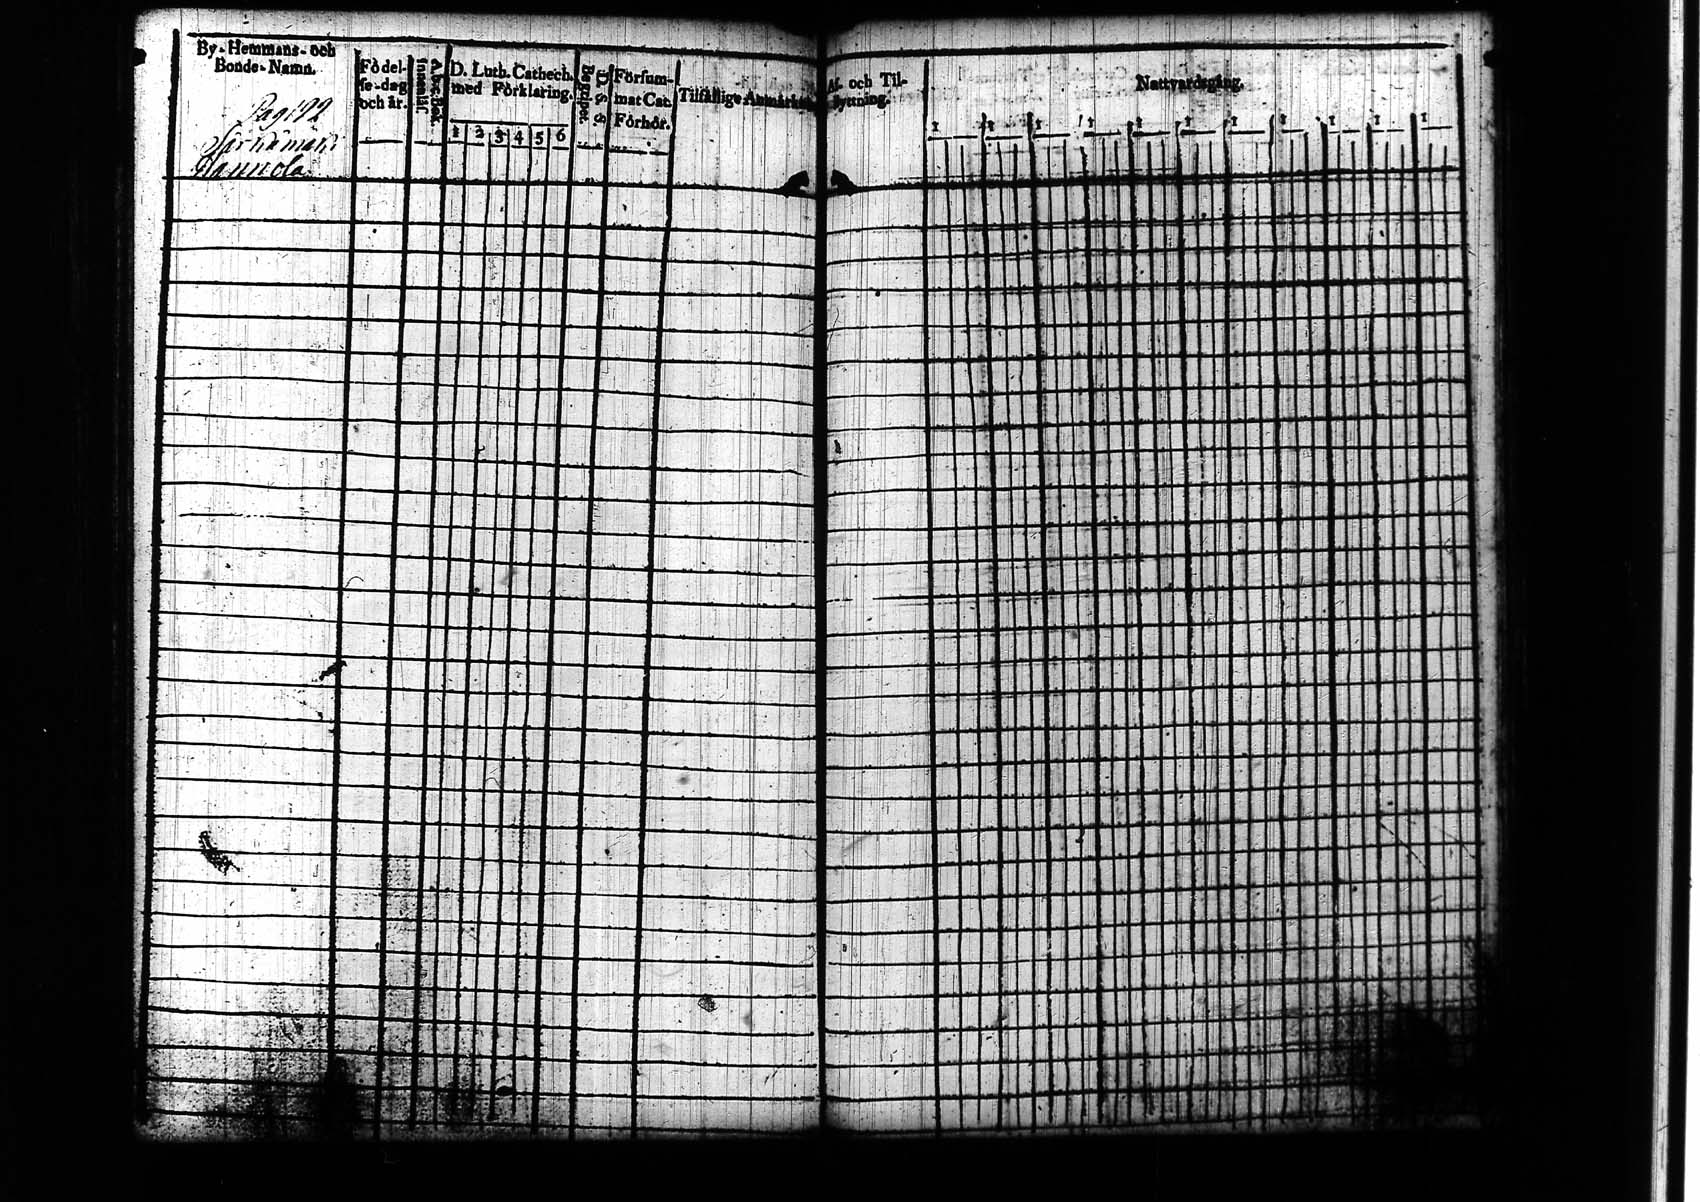 By-Hemmans-och
Bonde-Namn.
Pag: 192
Hannola
Födel-
se-dag
och år.
Innanläs.
A.b.c. Bok.
D. Luth. Catbech.
med Förklaring.
1 2 3 4 5 6
Begriper.
D. S. S.
Försum-
mat Cat.
Förhör.
Tilfällige Anmärkn
Af- och Til-
flyttning.
Nattvardsgång.
1 1 1 1 1 1 1 1 1 1 1